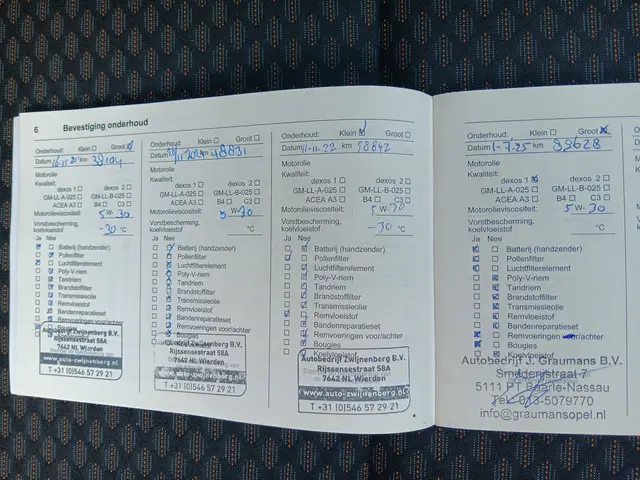 6 Bevestiging onderhoud
Onderhoud: Klein Groot
Datum 16-11-20 km 38104
Motorolie
Kwaliteit:
dexos 1 dexos 2
GM-LL-A-025 GM-LL-B-025
ACEA A3 B4 C3
Motorolieviscositeit: 5 W-30
Vorstbescherming,
koelvloeistof -30 °C
Ja Nee
Batterij (handzender)
Pollenfilter
Luchtfilterelement
Poly-V-riem
Tandriem
Brandstoffilter
Transmissieolie
Remvloeistof
Bandenreparatieset
Remvoeringen voor/achter
Bougies
Autobedrijf Zwijnenberg B.V.
Rijssensestraat 58A
7642 NL Wierden
www.auto-zwijnenberg.nl
T +31 (0)546 57 29 21
Onderhoud: Klein Groot
Datum km 48831
Motorolie
Kwaliteit:
dexos 1 dexos 2
GM-LL-A-025 GM-LL-B-025
ACEA A3 B4 C3
Motorolieviscositeit: 5 W-30
Vorstbescherming,
koelvloeistof °C
Ja Nee
Batterij (handzender)
Pollenfilter
Luchtfilterelement
Poly-V-riem
Tandriem
Brandstoffilter
Transmissieolie
Remvloeistof
Bandenreparatieset
Remvoeringen voor/achter
Bougies
Autobedrijf Zwijnenberg B.V.
Rijssensestraat 58A
7642 NL Wierden
T +31 (0)546 57 29 21
Onderhoud: Klein Groot
Datum 11-11-22 km 58842
Motorolie
Kwaliteit:
dexos 1 dexos 2
GM-LL-A-025 GM-LL-B-025
ACEA A3 B4 C3
Motorolieviscositeit: 5 W-30
Vorstbescherming,
koelvloeistof -30 °C
Ja Nee
Batterij (handzender)
Pollenfilter
Luchtfilterelement
Poly-V-riem
Tandriem
Brandstoffilter
Transmissieolie
Remvloeistof
Bandenreparatieset
Remvoeringen voor/achter
Bougies
Koelvloeistof
Autobedrijf Zwijnenberg B.V.
Rijssensestraat 58A
7642 NL Wierden
www.auto-zwijnenberg.nl
T +31 (0)546 57 29 21
Onderhoud: Klein Groot
Datum 1-7-25 km 89628
Motorolie
Kwaliteit:
dexos 1 dexos 2
GM-LL-A-025 GM-LL-B-025
ACEA A3 B4 C3
Motorolieviscositeit: 5 W-30
Vorstbescherming,
koelvloeistof °C
Ja Nee
Batterij (handzender)
Pollenfilter
Luchtfilterelement
Poly-V-riem
Tandriem
Brandstoffilter
Transmissieolie
Remvloeistof
Bandenreparatieset
Remvoeringen voor/achter
Bougies
Koelvloeistof
Autobedrijf J. Graumans B.V.
Smederijstraat 7
5111 PT Baarle-Nassau
Tel: 013-5079770
info@graumansopel.nl